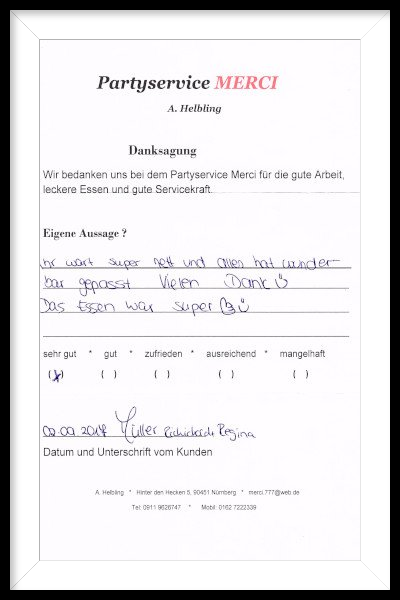 Partyservice MERCI
A. Helbling
Danksagung
Wir bedanken uns bei dem Partyservice Merci für die gute Arbeit,
leckere Essen und gute Servicekraft.
Eigene Aussage ?
Ihr wart super nett und alles hat wunder-
bar gepasst Vielen Dank
Das Essen war super
sehr gut * gut * zufrieden * ausreichend * mangelhaft
(x) ( ) ( ) ( ) ( )
Müller Regina
Datum und Unterschrift vom Kunden
A. Helbling * Hinter den Hecken 5, 90451 Nürnberg * merci.777@web.de
Tel: 0911 9626747 * Mobil: 0162 7222339